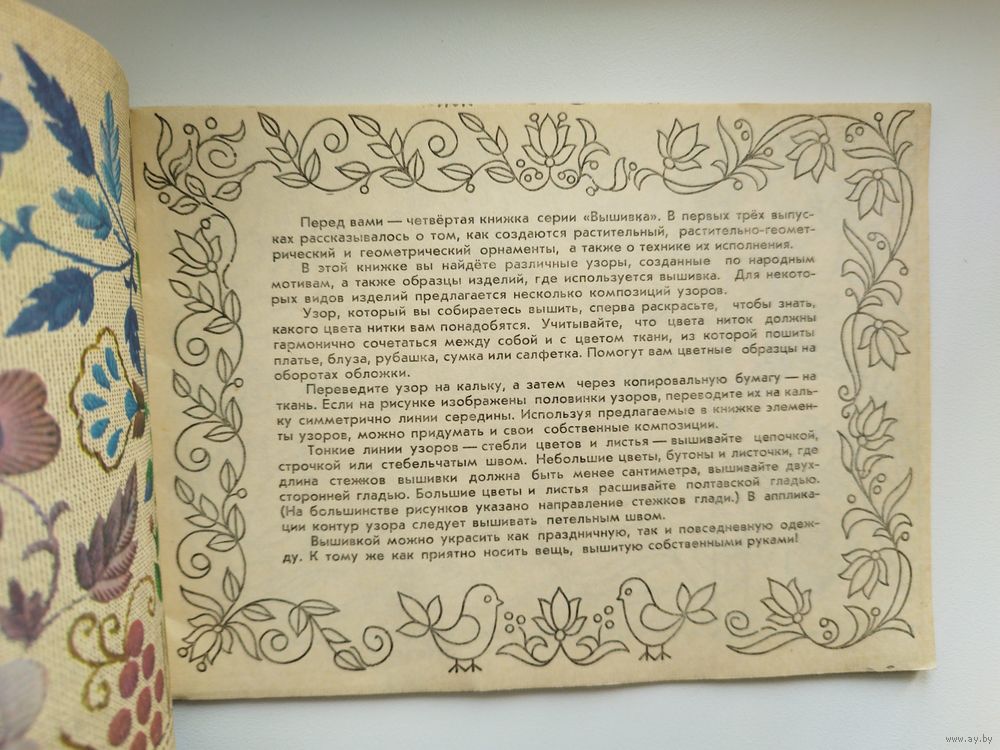 Перед вами — четвёртая книжка серии «Вышивка». В первых трёх выпус-
ках рассказывалось о том, как создаются растительный, растительно-геомет-
рический и геометрический орнаменты, а также о технике их исполнения.
В этой книжке вы найдёте различные узоры, созданные по народным
мотивам, а также образцы изделий, где используется вышивка. Для некото-
рых видов изделий предлагается несколько композиций узоров.
Узор, который вы собираетесь вышить, сперва раскрасьте, чтобы знать,
какого цвета нитки вам понадобятся. Учитывайте, что цвета ниток должны
гармонично сочетаться между собой и с цветом ткани, из которой пошиты
платье, блуза, рубашка, сумка или салфетка. Помогут вам цветные образцы на
оборотах обложки.
Переведите узор на кальку, а затем через копировальную бумагу — на
ткань. Если на рисунке изображены половинки узоров, переводите их на каль-
ку симметрично линии середины. Используя предлагаемые в книжке элемен-
ты узоров, можно придумать и свои собственные композиции.
Тонкие линии узоров — стебли цветов и листья — вышивайте цепочкой,
строчкой или стебельчатым швом. Небольшие цветы, бутоны и листочки, где
длина стежков вышивки должна быть менее сантиметра, вышивайте двух-
сторонней гладью. Большие цветы и листья расшивайте полтавской гладью.
(На большинстве рисунков указано направление стежков глади.) В апплика-
ции контур узора следует вышивать петельным швом.
Вышивкой можно украсить как праздничную, так и повседневную одеж-
ду. К тому же как приятно носить вещь, вышитую собственными руками!
www.ay.by